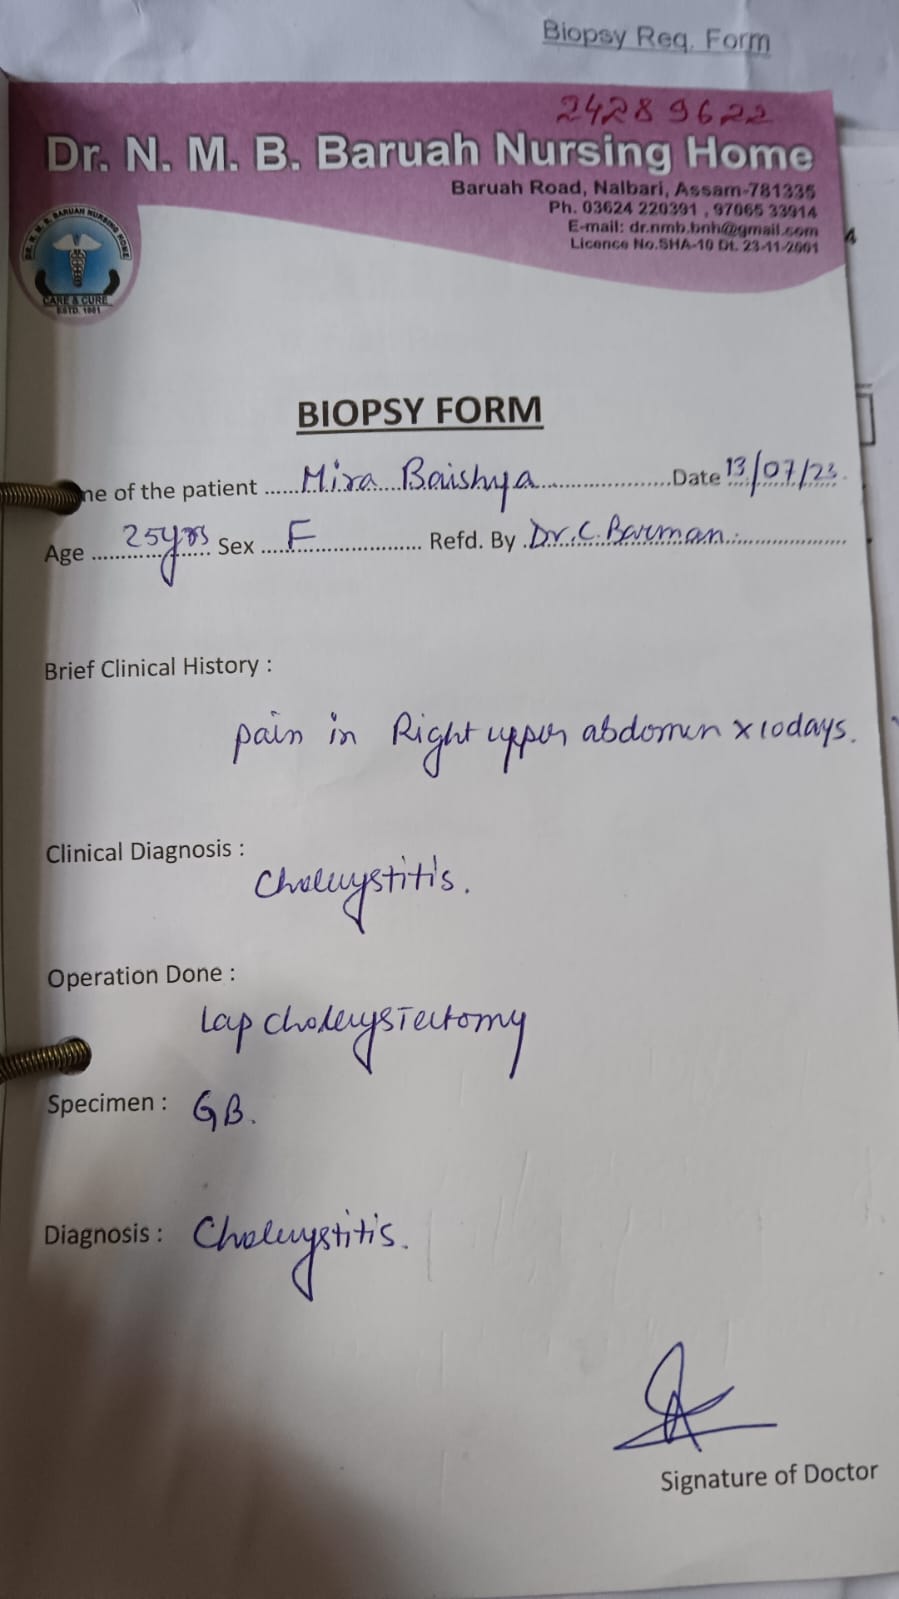 Biopsy Req. Form
24289622
Dr. N. M. B. Baruah Nursing Home
Baruah Road, Nalbari, Assam-781335
Ph. 03624 220391 , 97065 33914
E-mail: dr.nmb.bnh@gmail.com
Licence No.SHA-10 Dt. 23-11-2001
DR. N. M. B. BARUAH NURSING HOME
CARE & CURE
ESTD. 1981
BIOPSY FORM
me of the patient ...... Mira Baishya ...................... Date 13/07/23
Age .... 25yrs .... Sex .... F ................ Refd. By Dr. C. Barman ....................
Brief Clinical History :
pain in Right upper abdomen x 10days.
Clinical Diagnosis :
Cholecystitis.
Operation Done :
Lap cholecystectomy
Specimen : GB.
Diagnosis : Cholecystitis.
Signature of Doctor